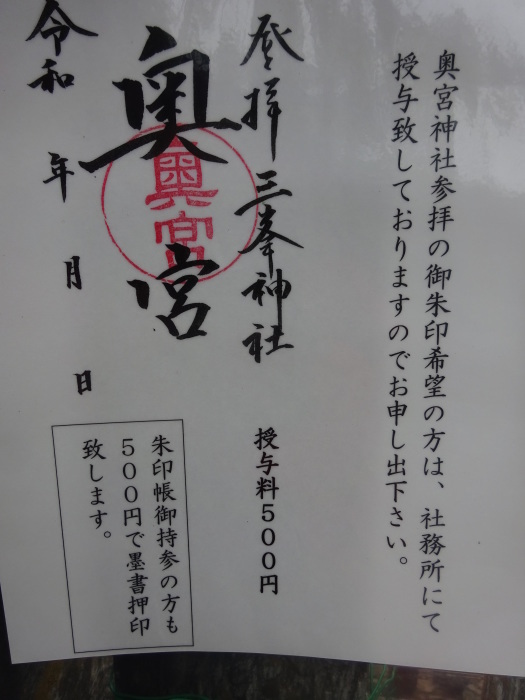 奥宮神社参拝の御朱印希望の方は、社務所にて
授与致しておりますのでお申し出下さい。
登拝三峯神社
奥宮
奥宮
令和 年 月 日
授与料500円
朱印帳御持参の方も
500円で墨書押印
致します。